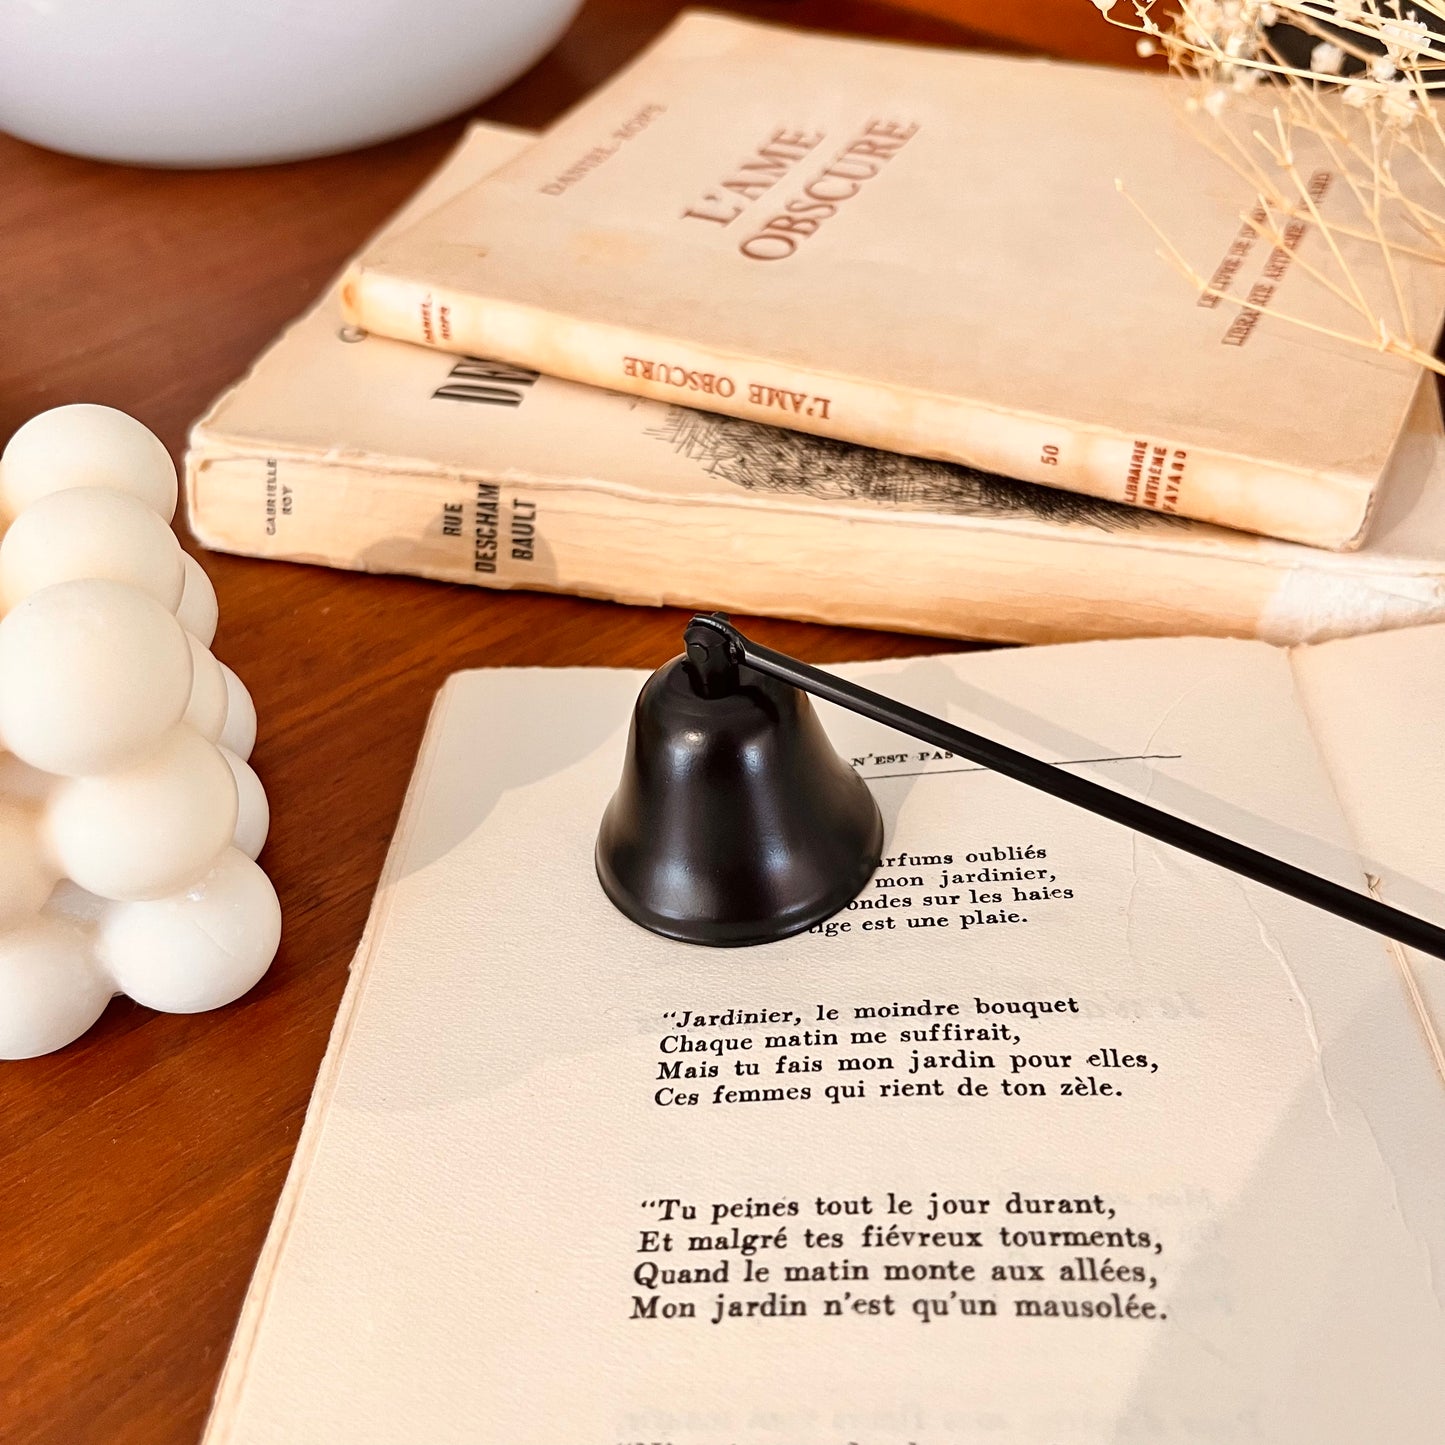 DANIEL-ROPS
L'AME
OBSCURE
LE LIVRE DE
LIBRAIRIE ARTHÈME FAYARD
DANIEL
ROPS
L'AME OBSCURE
50
LIBRAIRIE
ARTHÈME
FAYARD
GABRIELLE
ROY
RUE
DESCHAM
BAULT
N'EST PAS
rfums oubliés
mon jardinier,
ondes sur les haies
tige est une plaie.
“Jardinier, le moindre bouquet
Chaque matin me suffirait,
Mais tu fais mon jardin pour elles,
Ces femmes qui rient de ton zèle.
“Tu peines tout le jour durant,
Et malgré tes fiévreux tourments,
Quand le matin monte aux allées,
Mon jardin n'est qu'un mausolée.